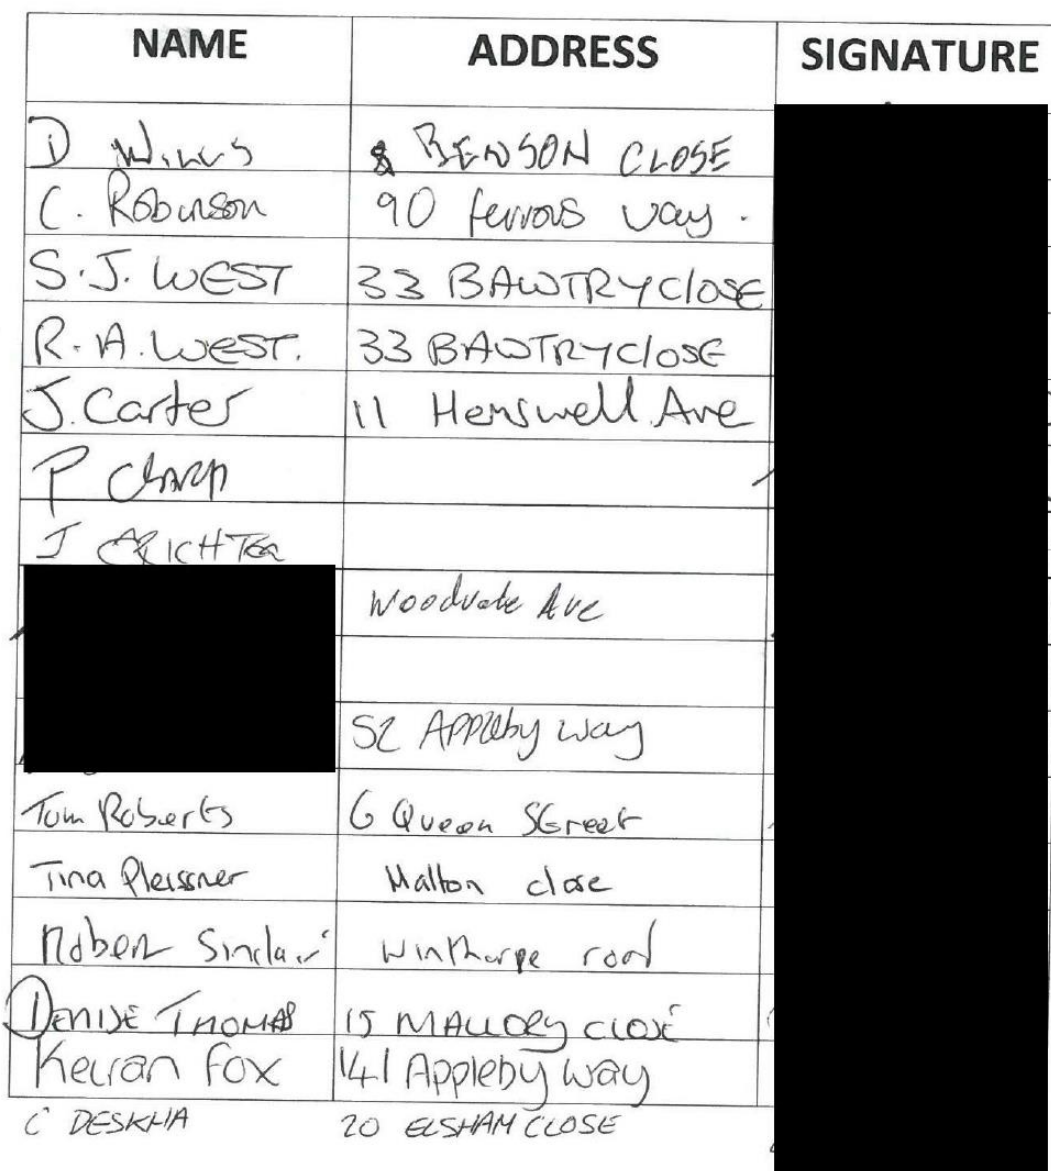 NAME ADDRESS SIGNATURE
D 8 BENSON CLOSE
C. Robinson 90 ferrous way.
S.J. WEST 33 BAWTRY CLOSE
R.A. WEST. 33 BAWTRY CLOSE
J. Carter 11 Hemswell Ave
P
J
Woodvale Ave
52 Appleby Way
Tom Roberts 6 Queen Street
Tina Pleissner Malton close
Robert Sinclair Winthorpe road
DENISE THOMAS 15 MALLORY CLOSE
Keiran Fox 141 Appleby Way
C 20 ELSHAM CLOSE